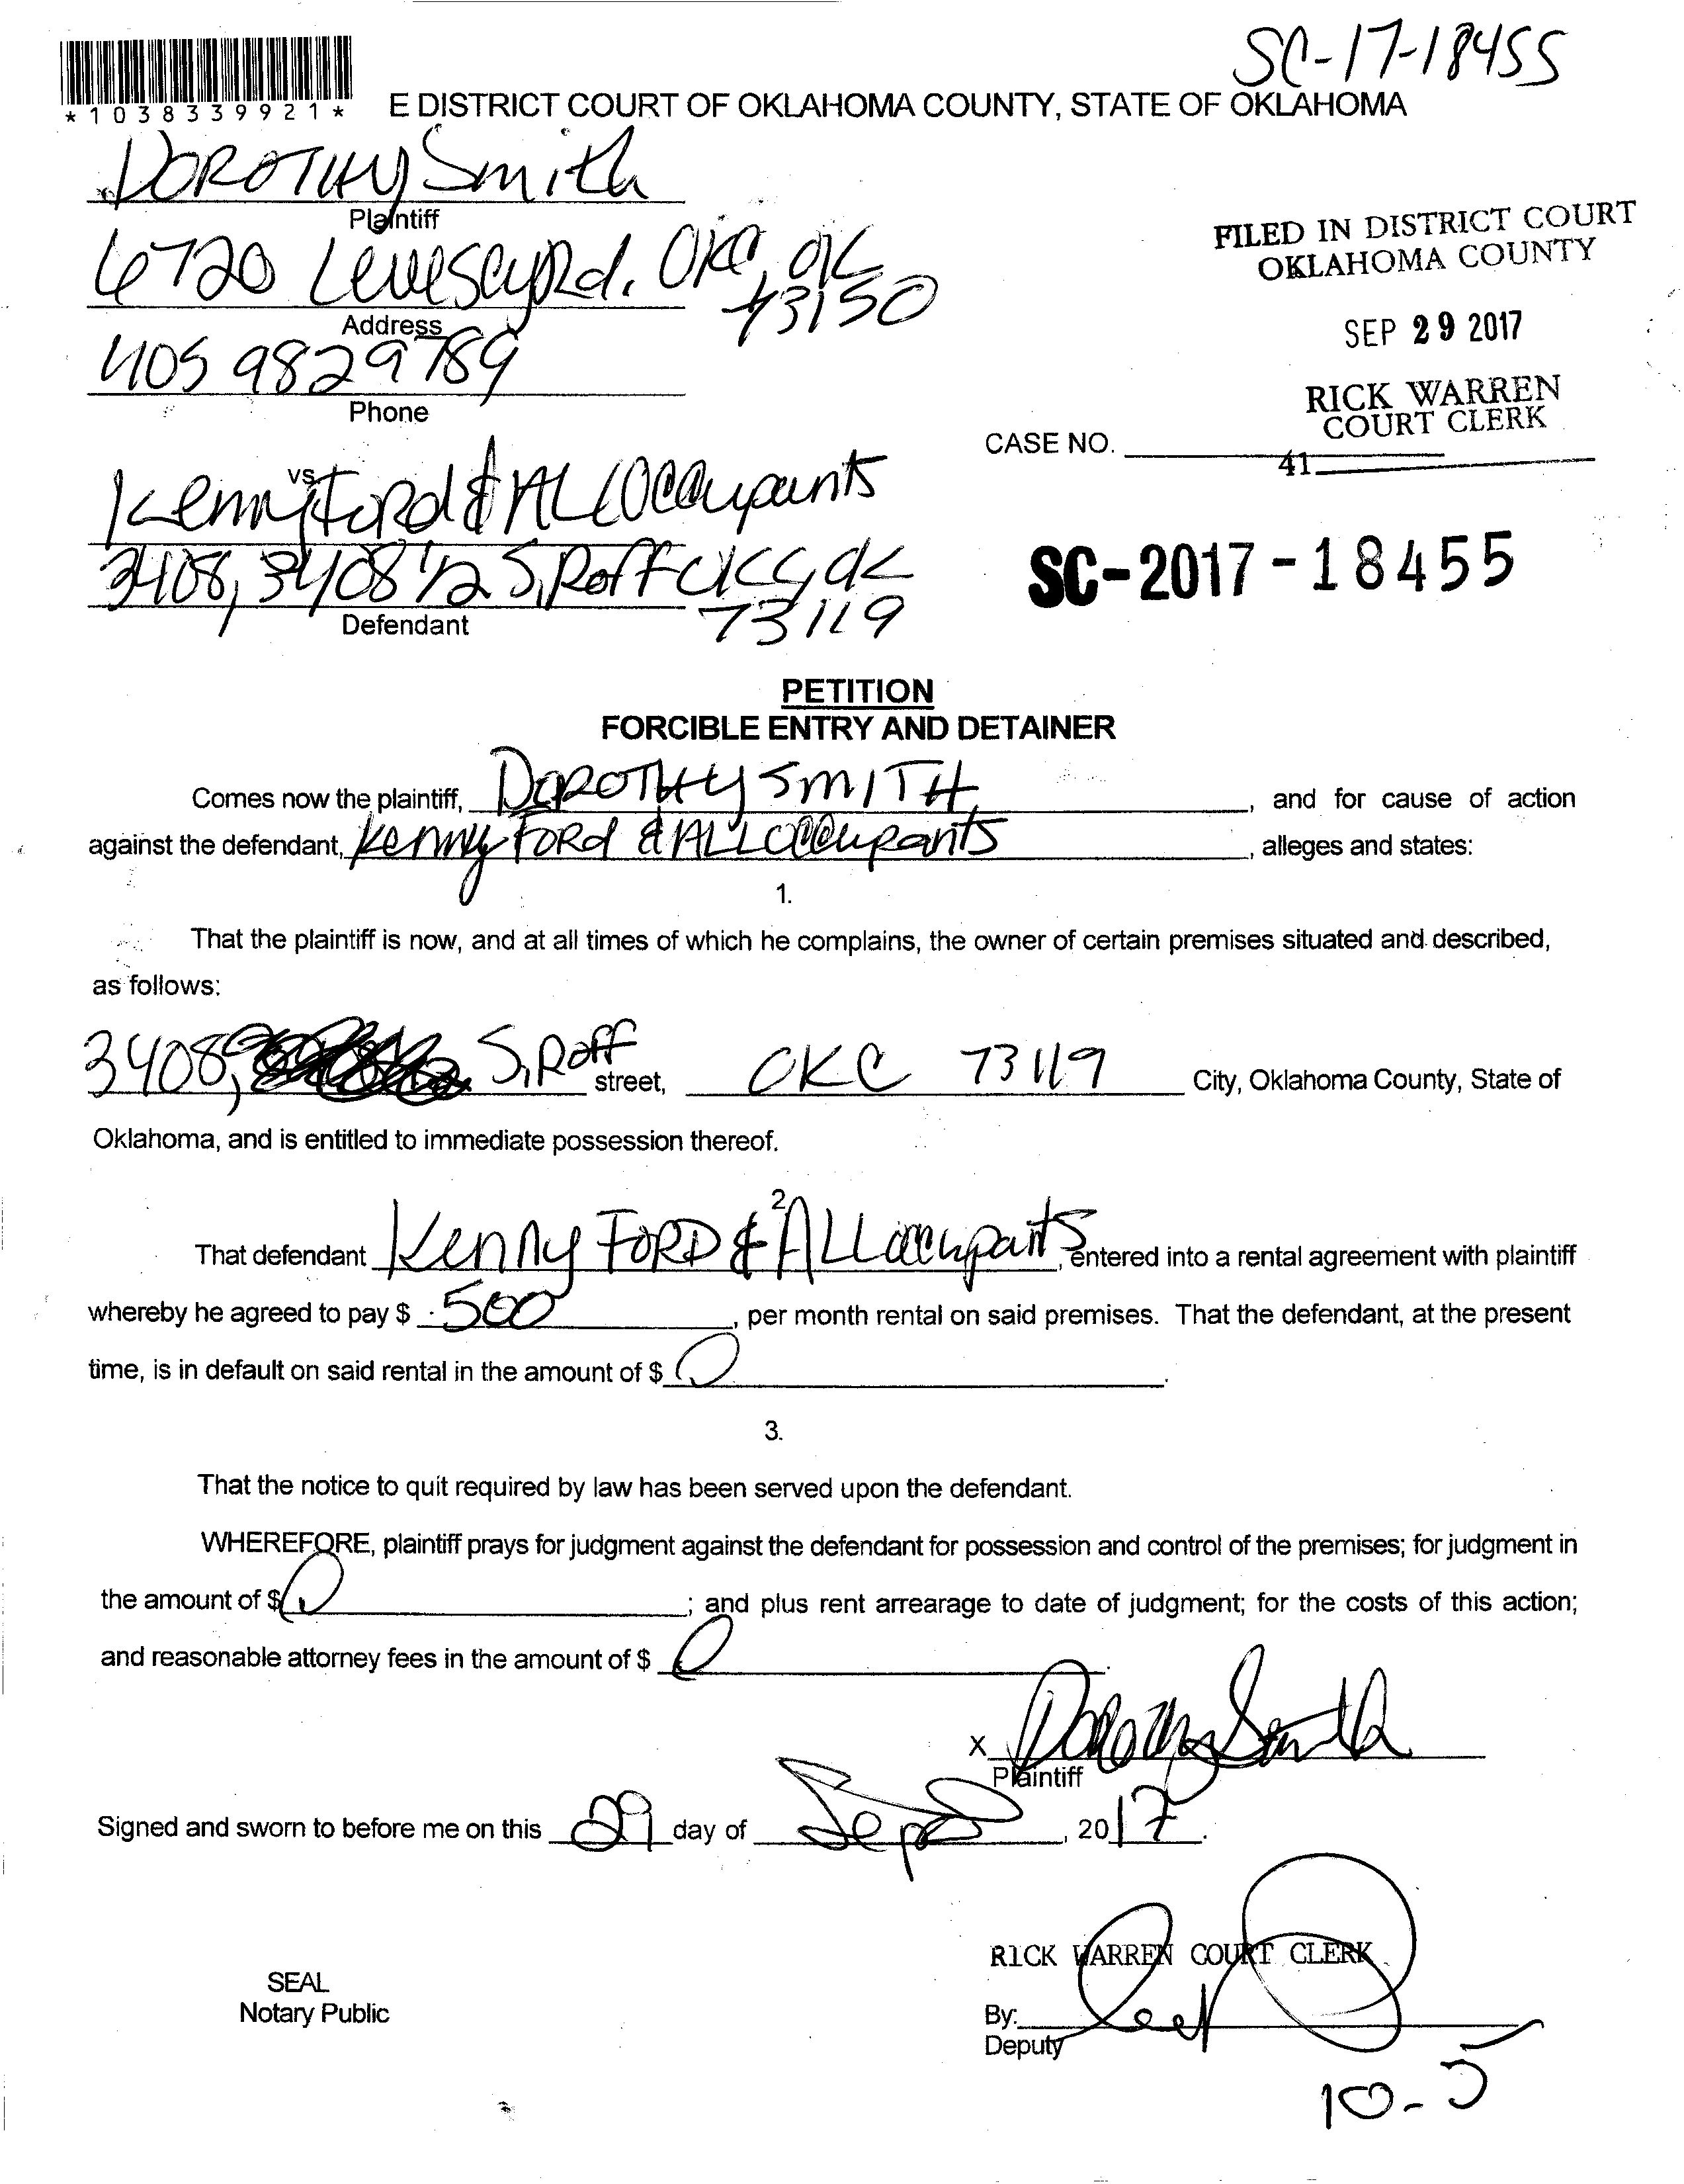 SC-17-18455
*1038339921*
E DISTRICT COURT OF OKLAHOMA COUNTY, STATE OF OKLAHOMA
DOROTHY Smith
Plaintiff
6720 Rd. OKC, OK
73150
Address
405 9829789
Phone
FILED IN DISTRICT COURT
OKLAHOMA COUNTY
SEP 29 2017
RICK WARREN
COURT CLERK
CASE NO.
41
vs.
Kenny Ford & ALL Occupants
3408, 3408 1/2 S, Roff OKC, OK
73119
Defendant
SC-2017-18455
PETITION
FORCIBLE ENTRY AND DETAINER
Comes now the plaintiff, DOROTHY SMITH, and for cause of action
against the defendant, Kenny FORd & ALL Occupants, alleges and states:
1.
That the plaintiff is now, and at all times of which he complains, the owner of certain premises situated and described,
as follows:
3408, S, Roff street, OKC 73119 City, Oklahoma County, State of
Oklahoma, and is entitled to immediate possession thereof.
2.
That defendant Kenny FORD & ALL occupants, entered into a rental agreement with plaintiff
whereby he agreed to pay $ 500, per month rental on said premises. That the defendant, at the present
time, is in default on said rental in the amount of $ 0.
3.
That the notice to quit required by law has been served upon the defendant.
WHEREFORE, plaintiff prays for judgment against the defendant for possession and control of the premises; for judgment in
the amount of $ 0; and plus rent arrearage to date of judgment; for the costs of this action;
and reasonable attorney fees in the amount of $ 0.
X Dorothy Smith
Plaintiff
Signed and sworn to before me on this 29 day of Sept, 2017.
RICK WARREN COURT CLERK
SEAL
Notary Public
By:
Deputy
10-5